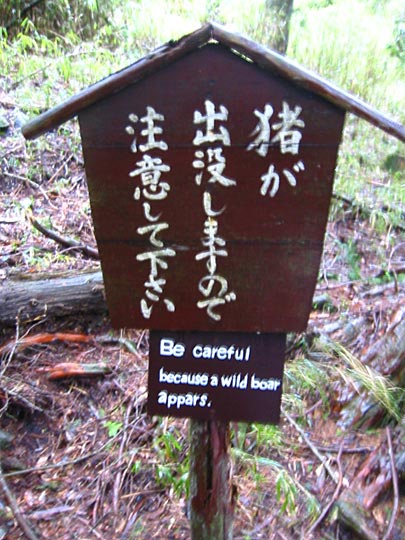 猪が
出没しますので
注意して下さい
Be careful
because a wild boar
appars.